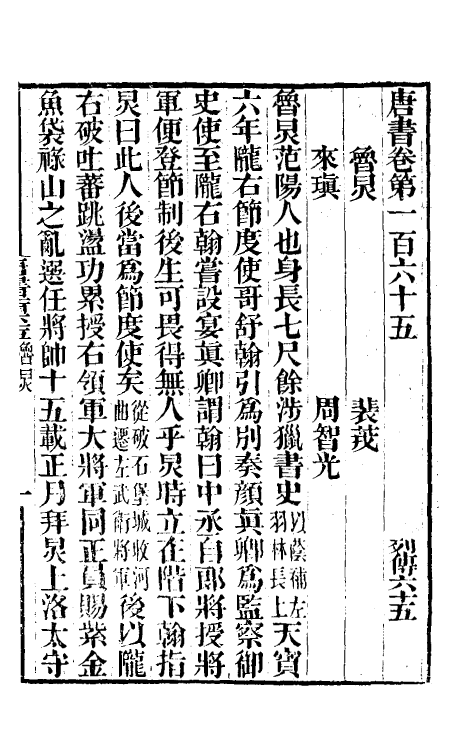 唐書卷第一百六十五 列傳六十五
魯炅 裴茂
來瑱 周智光
魯炅范陽人也身長七尺餘涉獵書史以蔭補左羽林長上天寶
六年隴右節度使哥舒翰引爲別奏顏眞卿爲監察御
史使至隴右翰嘗設宴眞卿謂翰曰中丞自郎將授將
軍便登節制後生可畏得無人乎炅時立在階下翰指
炅曰此人後當爲節度使矣從破石堡城收河曲遷左武衛將軍後以隴
右破吐蕃跳盪功累授右領軍大將軍同正員賜紫金
魚袋祿山之亂選任將帥十五載正月拜炅上洛太守
魯炅 一